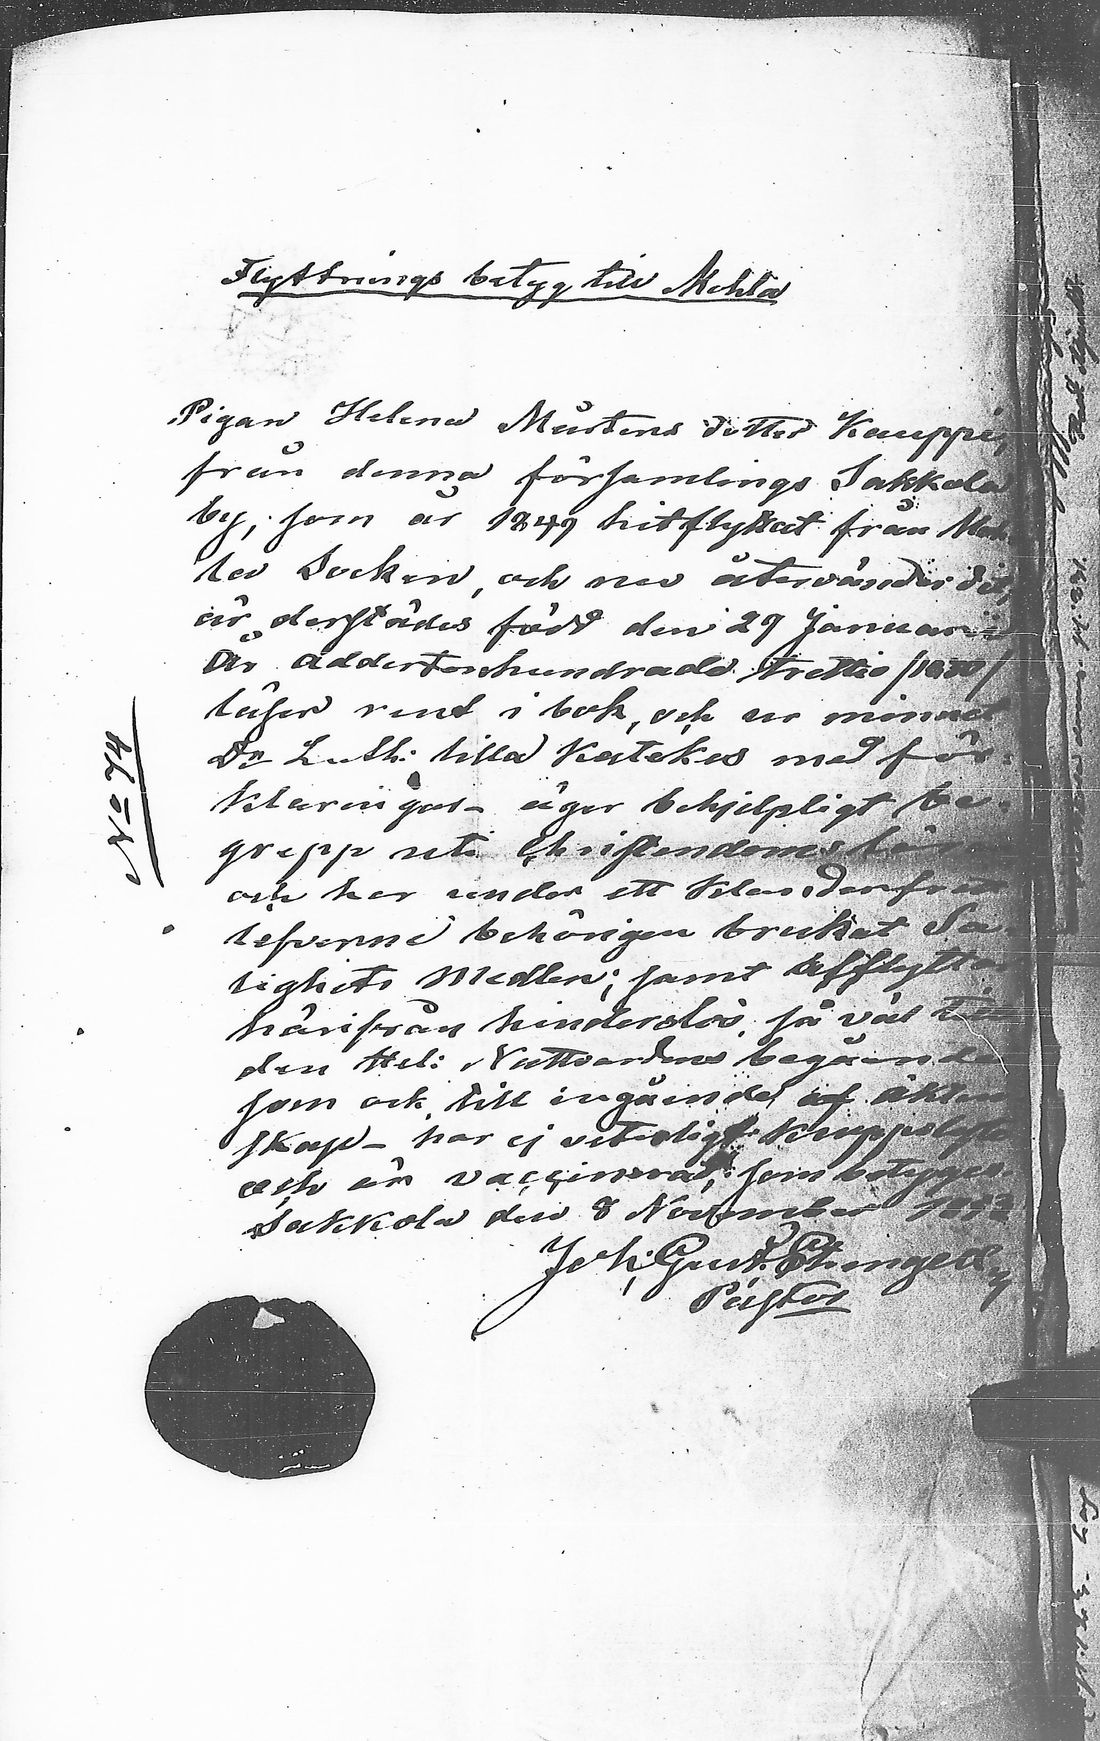 Flyttnings betyg till Mohla
Pigan Helena Mårtens dotter Kauppi,
från denna församlings Sakkola
by, som år 1849 hitflyttat från Moh
la Socken, och nu återvänder dit,
är derstädes född den 29 Januarii
År Addertonhundrade trettio /1830/
läser rent i bok, och ur minnet
Dr Luth: lilla Katekes med för-
klaringar - äger behjelpligt be
grepp uti Christendoms lär
och har under ett klanderfritt
lefverne behörigen brukat Sa-
lighets Medlen; samt afflyttar
härifrån hinderslös, så väl till
den Hel: Nattvardens begående
som ock till ingående af äkten
skap - har ej veterligt koppslagits
och är vaccinerad, som betygges
Sakkola den 8 November
Joh: Gust.
Pastor
No 74